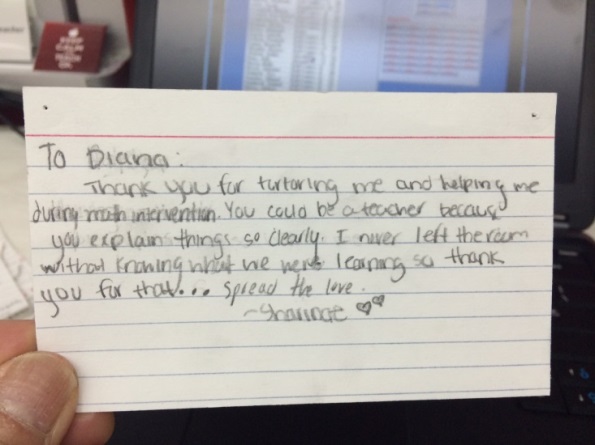 To Diana:
Thank you for turtoring me and helping me
during math intervention. You could be a teacher becaus
you explain things so clearly. I never left the room
without knowing what we were learning so thank
you for that... Spread the love.